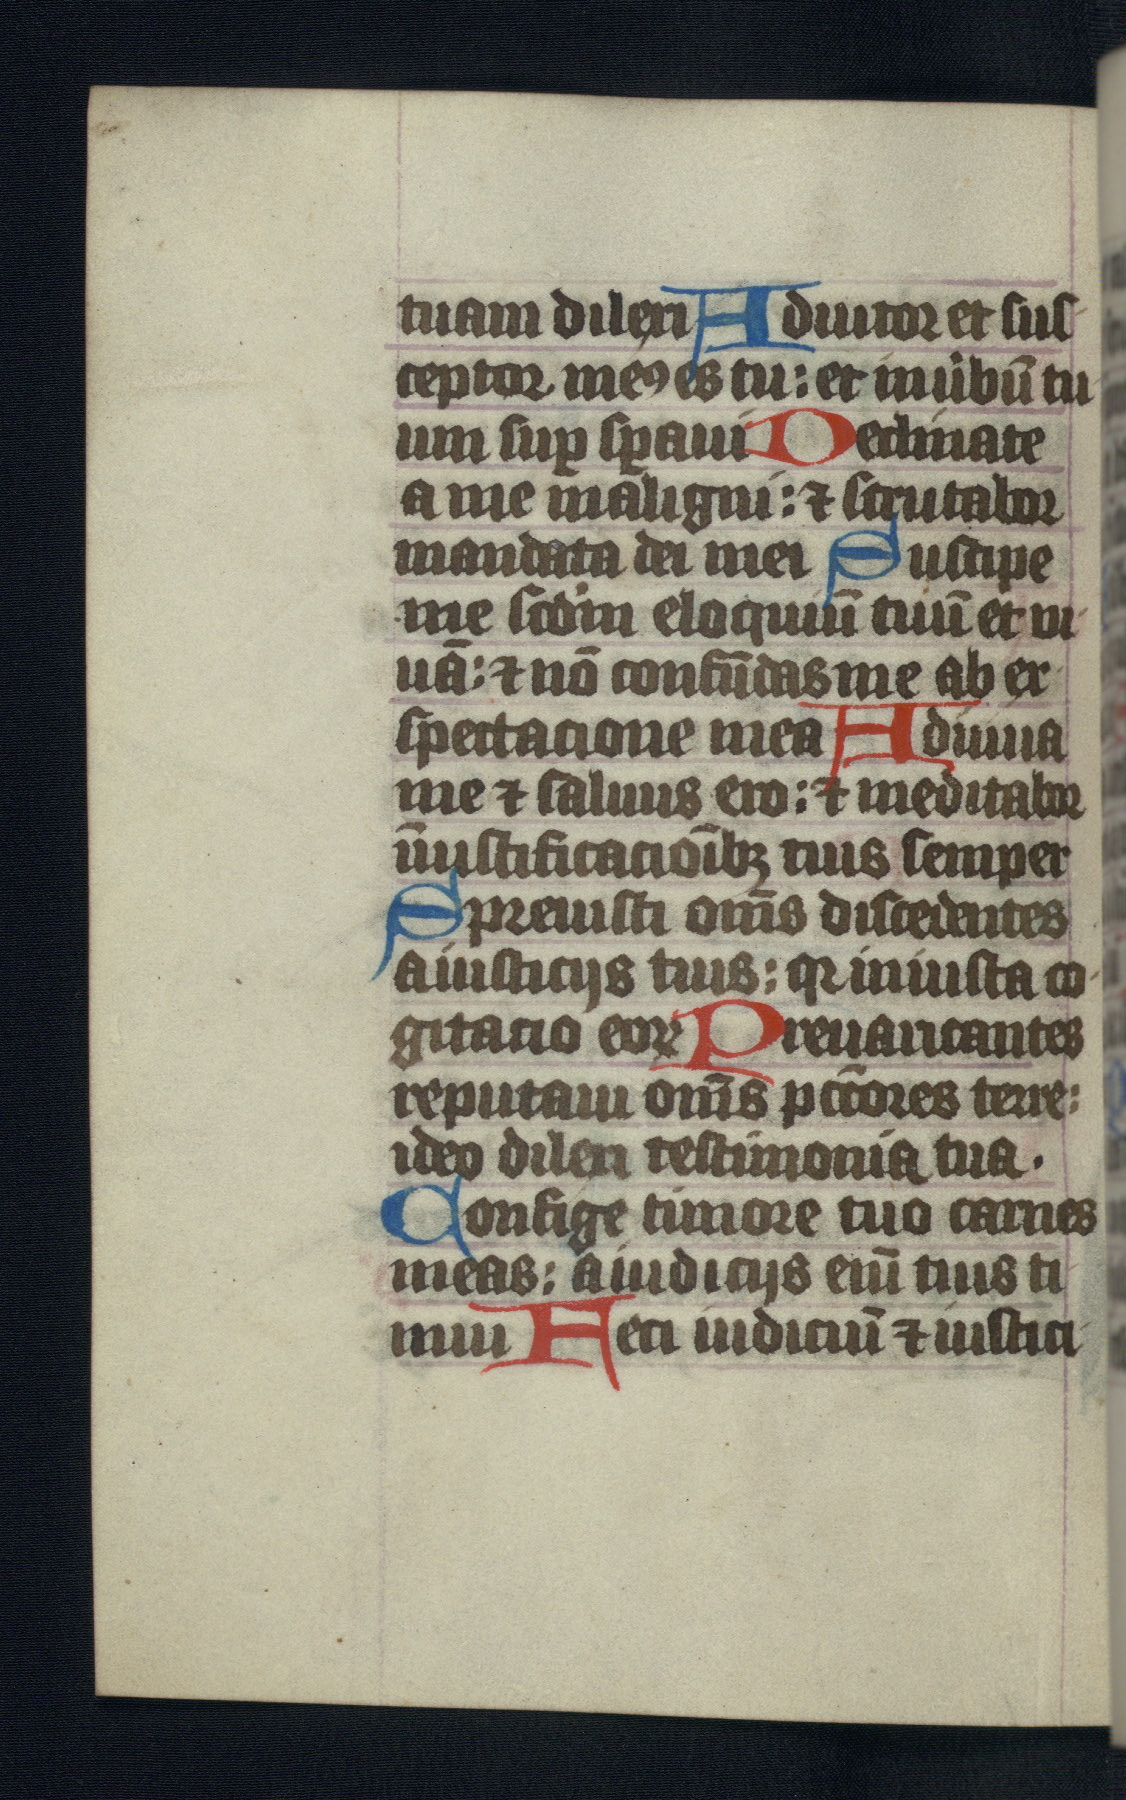 tuam dilexi Adiutor et sus
ceptor meꝰ es tu: et in ūbū tu
um suꝑ sꝑaui Declinate
a me maligni: ⁊ scrutabor
mandata dei mei Suscipe
me scdm̄ eloquiū tuū et vi
uā: ⁊ nō confūdas me ab ex
spectacione mea Adiuua
me ⁊ saluus ero: ⁊ meditabor
in iustificacioībꝫ tuis semper
Spreuisti om̄s discedentes
a iusticijs tuis: qꝛ iniusta co
gitacio eoꝝ Preuaricantes
reputaui om̄s pctōres terre:
ideo dilexi testimonia tua.
Confige timore tuo carnes
meas: a iudicijs enī tuis ti
mui Feci iudiciū ⁊ iustici